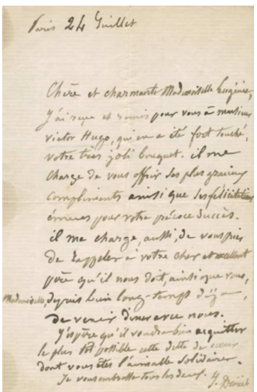 Paris 24 Juillet
Chère et charmante Mademoiselle Eugénie,
J'ai reçu et remis pour vous à monsieur
Victor Hugo, qui en a été fort touché,
votre très joli bouquet. il me
charge de vous offrir ses plus gracieux
compliments ainsi que ses félicitations
émues pour votre précoce succès.
il me charge, aussi, de vous prier
de rappeler à votre cher et excellent
père qu'il nous doit, ainsi que vous,
Mademoiselle depuis bien long-temps déjà,
de venir dîner avec nous.
J'espère qu'il voudra bien acquitter
le plus tôt possible cette dette de cœur
dont vous êtes l'aimable solidaire.
Je vous embrasse tous les deux. J. Drouet